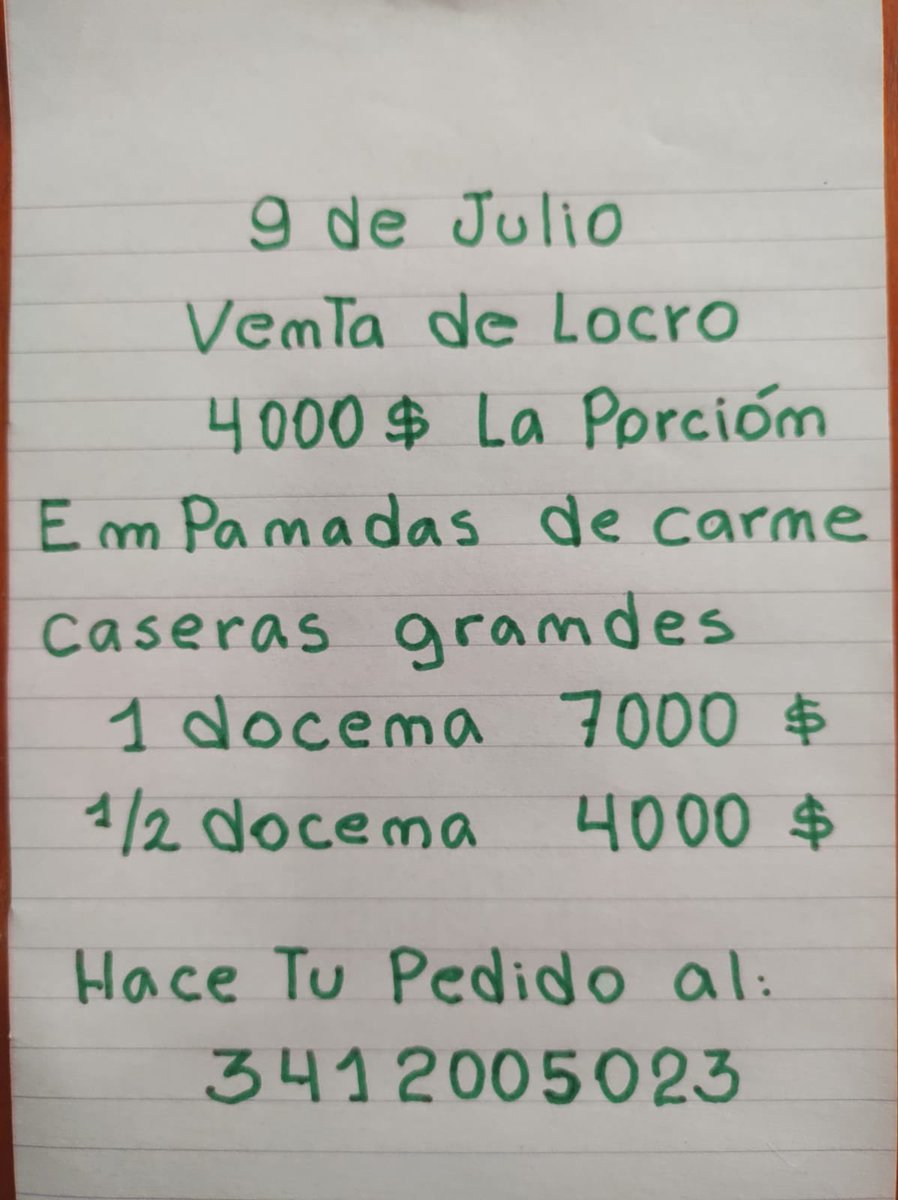 9 de Julio
VemTa de Locro
4000 $ La Porcióm
EmPamadas de carme
caseras gramdes
1 docema 7000 $
1/2 docema 4000 $
Hace Tu Pedido al:
3412005023